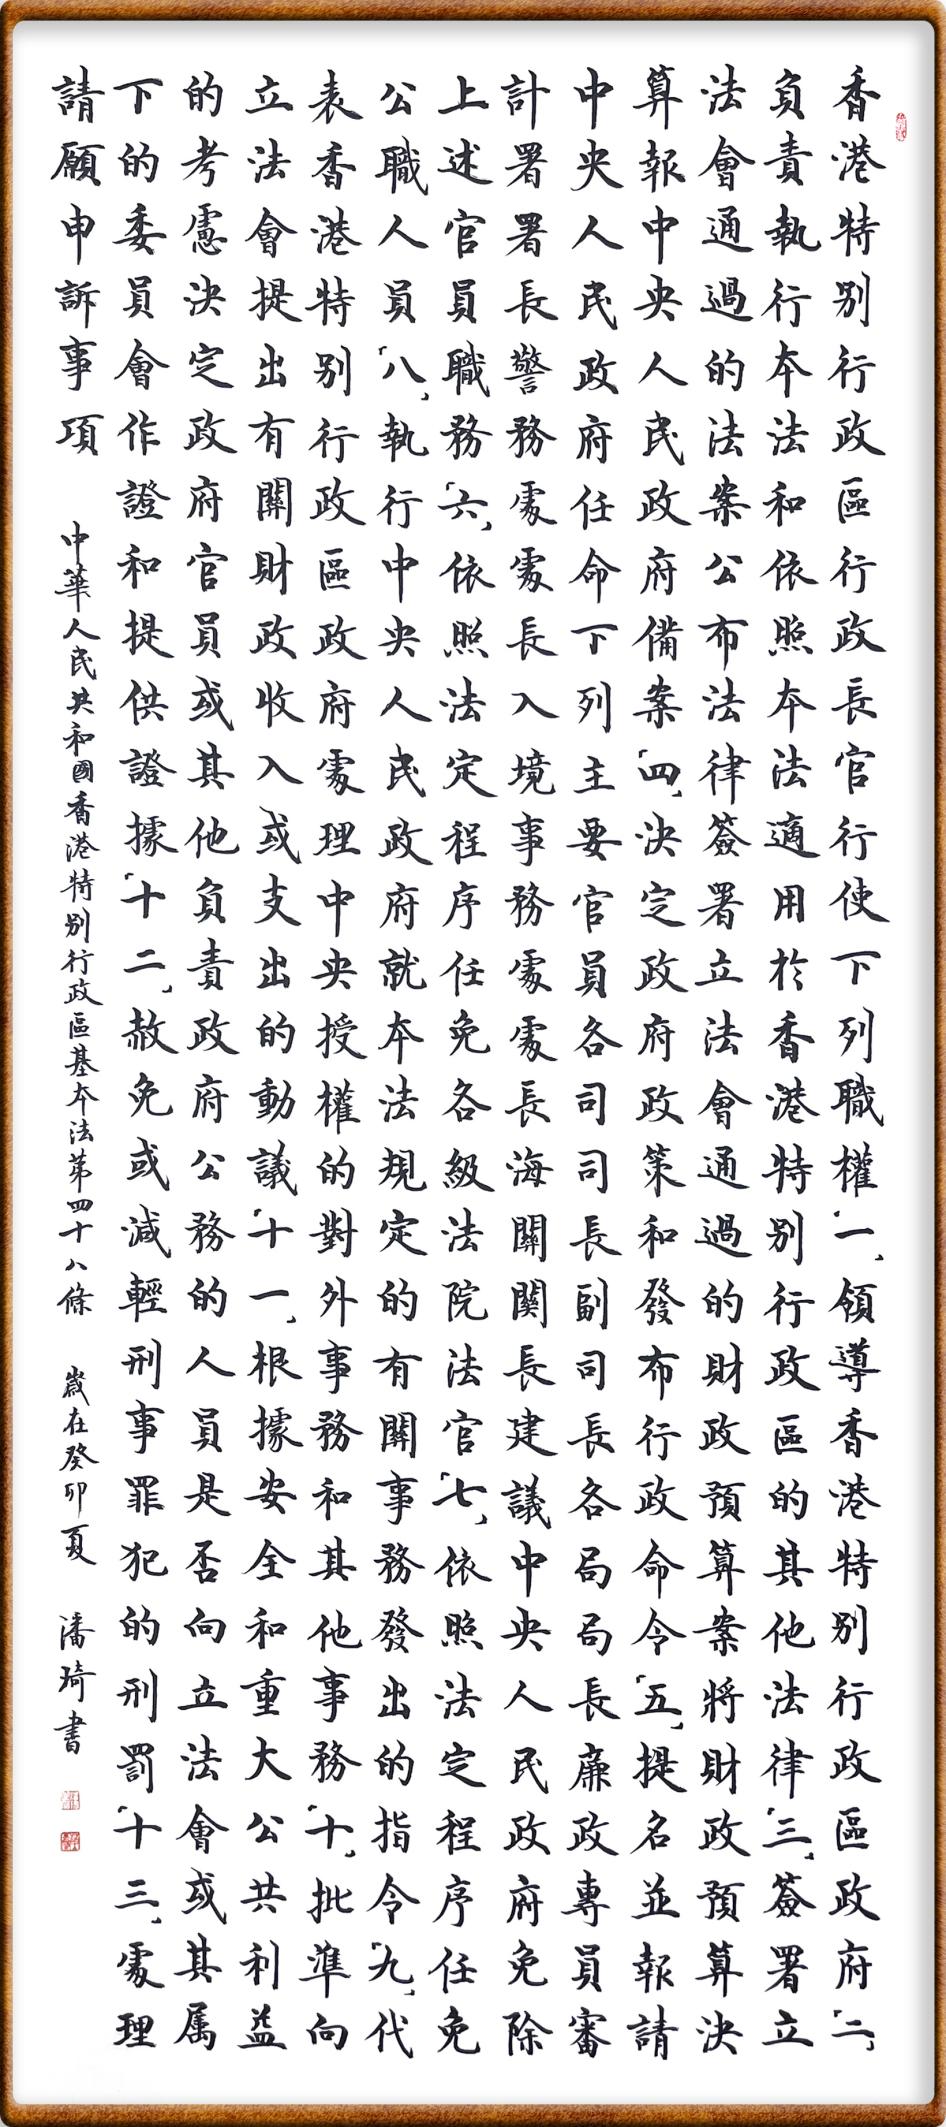 香港特别行政區行政長官行使下列職權「一」領導香港特别行政區政府「二」
負責執行本法和依照本法適用於香港特别行政區的其他法律「三」簽署立
法會通過的法案公布法律簽署立法會通過的財政預算案將財政預算決
算報中央人民政府備案「四」決定政府政策和發布行政命令「五」提名並報請
中央人民政府任命下列主要官員各司司長副司長各局局長廉政專員審
計署署長警務處處長入境事務處處長海關關長建議中央人民政府免除
上述官員職務「六」依照法定程序任免各級法院法官「七」依照法定程序任免
公職人員「八」執行中央人民政府就本法規定的有關事務發出的指令「九」代
表香港特别行政區政府處理中央授權的對外事務和其他事務「十」批準向
立法會提出有關財政收入或支出的動議「十一」根據安全和重大公共利益
的考慮決定政府官員或其他負責政府公務的人員是否向立法會或其属
下的委員會作證和提供證據「十二」赦免或減輕刑事罪犯的刑罰「十三」處理
請願申訴事項 中華人民共和國香港特别行政區基本法第四十八條 歲在癸卯夏 潘琦書